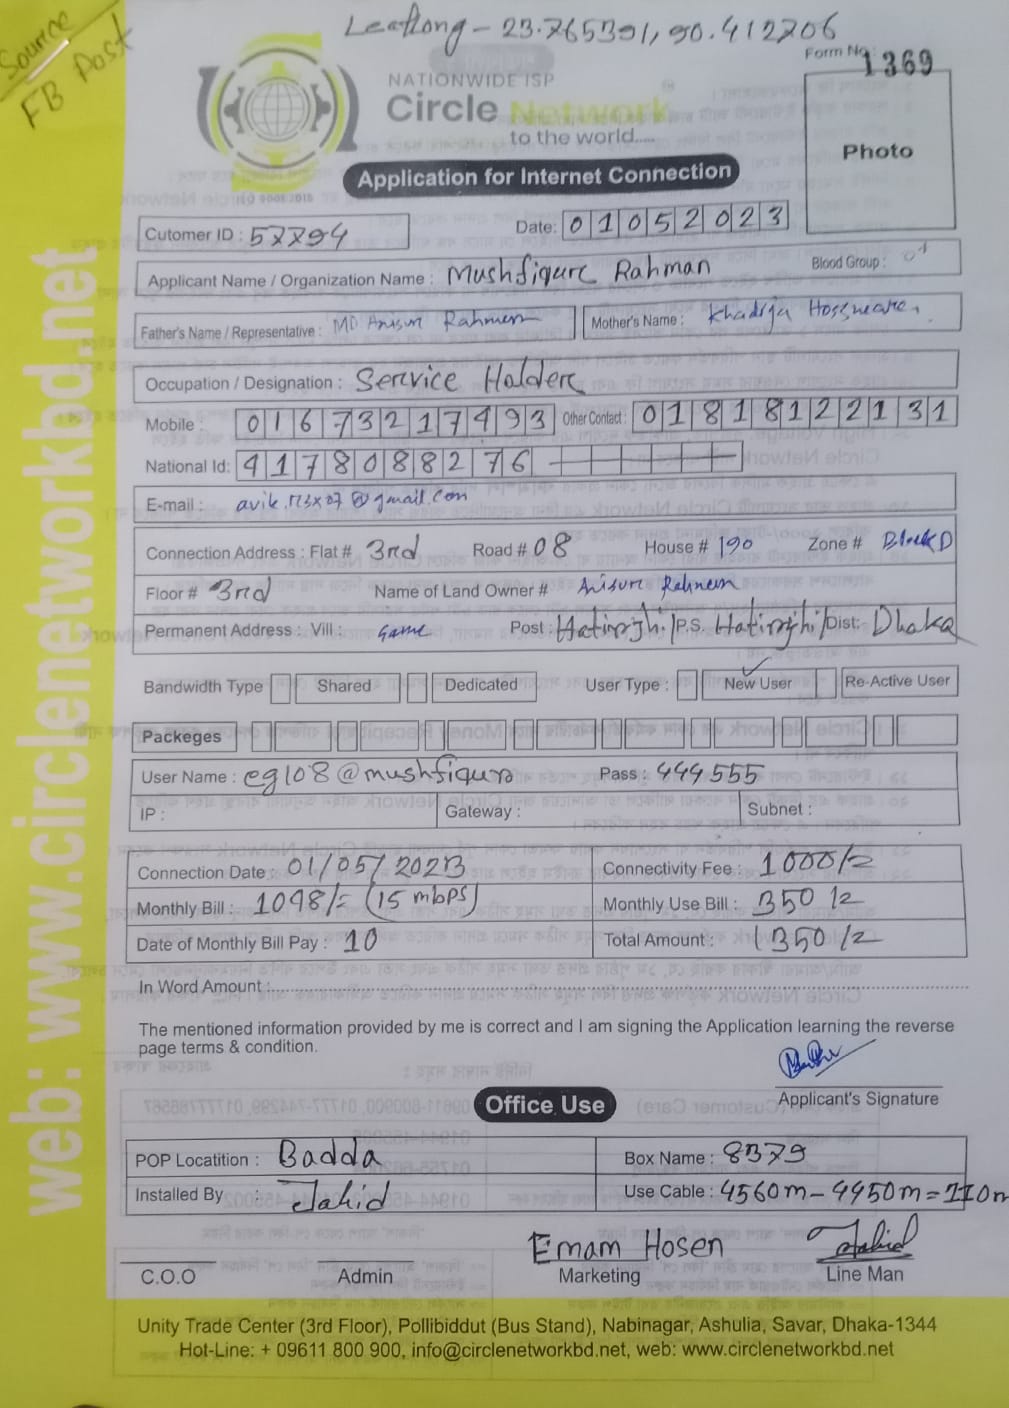 Source
FB Post
Leatlong - 23.765391, 90.412706
Form No: 1369
NATIONWIDE ISP
Circle Network
to the world.....
Photo
Application for Internet Connection
Cutomer ID : 57794
Date: 01052023
Applicant Name / Organization Name : Mushfiqure Rahman
Blood Group :
Father's Name / Representative : MD Anisur Rahman
Mother's Name : Khadija
Occupation / Designation : Service Holder
Mobile : 01673217493 Other Contact : 01818122131
National Id: 4178088276
E-mail : @gmail.com
Connection Address : Flat # 3rd Road # 08 House # 190 Zone # Block D
Floor # 3rd Name of Land Owner # Anisur Rahman
Permanent Address : Vill : same Post : Hatirjhil P.S. Hatirjhil Dist: Dhaka
Bandwidth Type Shared Dedicated User Type : New User Re-Active User
Packeges
User Name : eg108@mushfiqure Pass : 444555
IP : Gateway : Subnet :
Connection Date : 01/05/2023 Connectivity Fee : 1000/=
Monthly Bill : 1098/= (15 mbps) Monthly Use Bill : 350/=
Date of Monthly Bill Pay : 10 Total Amount : 1350/=
In Word Amount :
The mentioned information provided by me is correct and I am signing the Application learning the reverse
page terms & condition.
Applicant's Signature
Office Use
POP Locatition : Badda Box Name : 8379
Installed By : Jahid Use Cable : 4560m - 4450m = 110m
Emam Hosen Jahid
C.O.O Admin Marketing Line Man
Unity Trade Center (3rd Floor), Pollibiddut (Bus Stand), Nabinagar, Ashulia, Savar, Dhaka-1344
Hot-Line: + 09611 800 900, info@circlenetworkbd.net, web: www.circlenetworkbd.net
web: www.circlenetworkbd.net